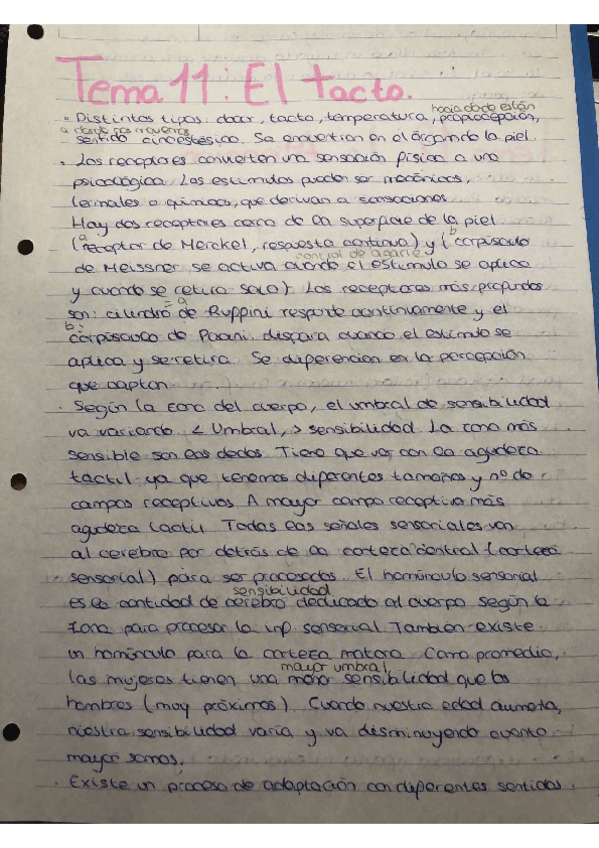 Tema 11: El tacto.
hacia donde están
· Distintos tipos: dolor, tacto, temperatura, propiocepción,
a donde nos movemos
sentido cinestésico. Se encuentran en el órgano de la piel.
· Los receptores convierten una sensación física a una
psicológica. Los estímulos pueden ser mecánicos,
termales o químicos, que derivan a sensaciones.
Hay dos receptores cerca de la superficie de la piel
a b
(receptor de Merckel, respuesta continua) y (corpúsculo
control de agarre
de Meissner se activa cuando el estímulo se aplica
y cuando se retira solo). Los receptores más profundos
= a
son: cilindro de Ruppini responde continuamente y el
b:
corpúsculo de Pacini, dispara cuando el estímulo se
aplica y se retira. Se diferencian en la percepción
que captan.
· Según la zona del cuerpo, el umbral de sensibilidad
va variando. < Umbral, > sensibilidad. La zona más
sensible son los dedos. Tiene que ver con la agudeza
táctil ya que tenemos diferentes tamaños y nº de
campos receptivos. A mayor campo receptivo más
agudeza táctil. Todas las señales sensoriales van
al cerebro por detrás de la corteza central (corteza
sensorial) para ser procesadas. El homúnculo sensorial
sensibilidad
es la cantidad de cerebro dedicado al cuerpo según la
zona para procesar la inf. sensorial. También existe
un homúnculo para la corteza motora. Como promedio,
mayor umbral
las mujeres tienen una sensibilidad que los
hombres (muy próximos). Cuando nuestra edad aumenta,
nuestra sensibilidad varía y va disminuyendo cuanto
mayor somos.
· Existe un proceso de adaptación con diferentes sentidos.